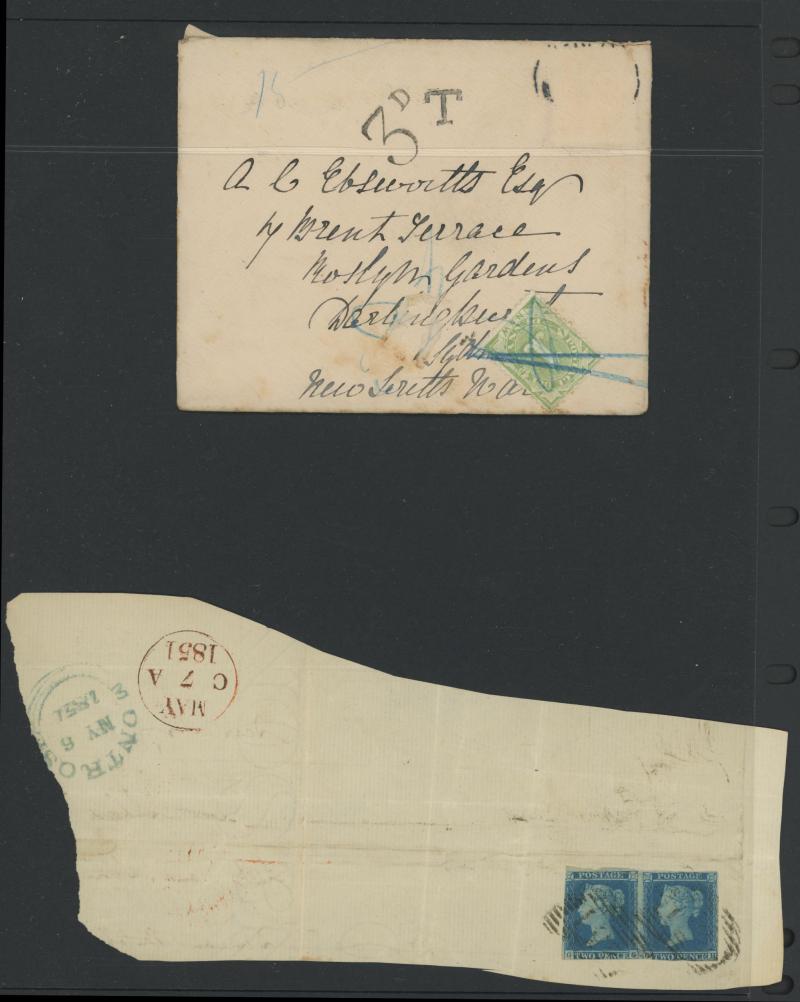 15
3D T
A C Ebsworth Esq
17 Brent Terrace
Roslyn Gardens
Darlinghurst
New South Wa
MAY
C 7 A
1851
MONTROSE
MY 6
1851
POSTAGE
TWO PENCE
POSTAGE
TWO PENCE